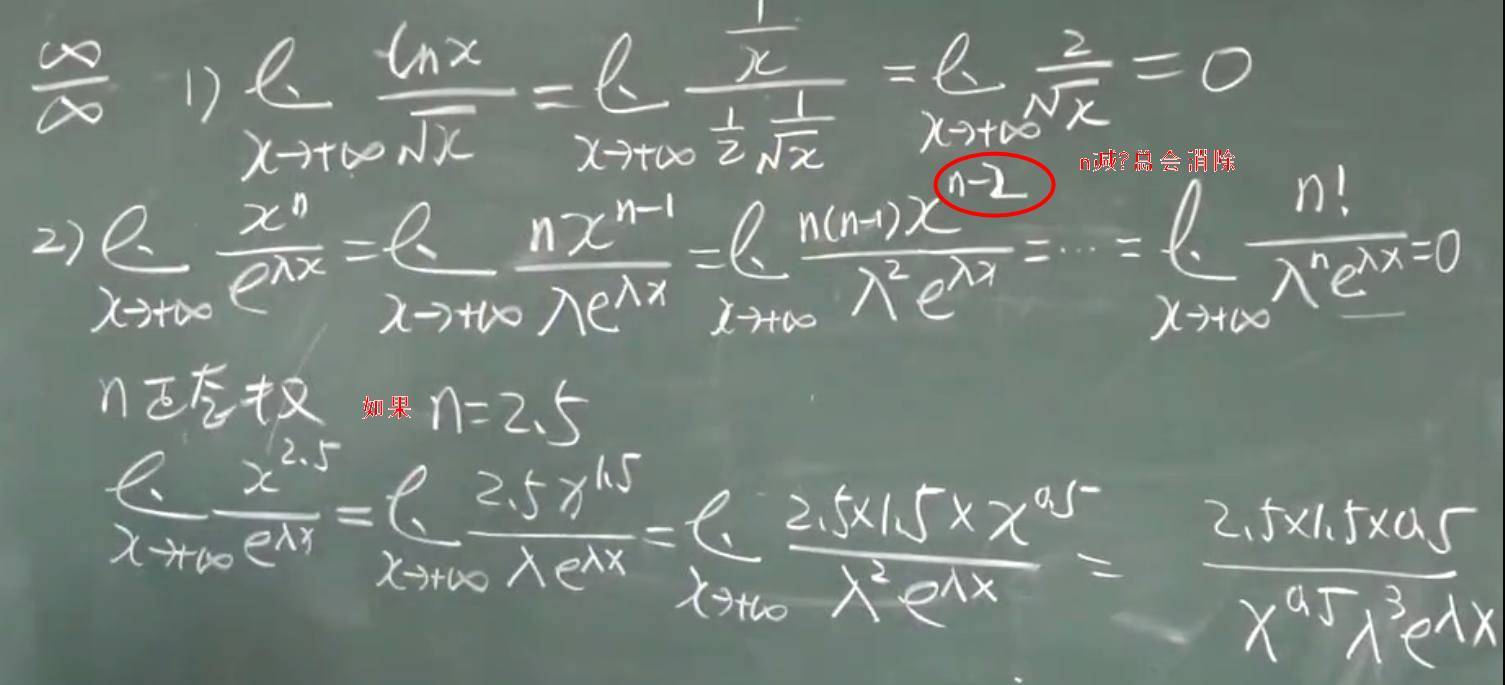 ∞/∞ 1) l. x→+∞ lnx/√x = l. x→+∞ (1/x)/(1/2 1/√x) = l. x→+∞ 2/√x = 0
n减?总会消除
2) l. x→+∞ xⁿ/e^(λx) = l. x→+∞ nx^(n-1)/λe^(λx) = l. x→+∞ n(n-1)x^(n-2)/λ²e^(λx) = … = l. x→+∞ n!/λⁿe^(λx) = 0
n正整数 如果 n=2.5
l. x→+∞ x^2.5/e^(λx) = l. x→+∞ 2.5x^1.5/λe^(λx) = l. x→+∞ 2.5×1.5×x^0.5/λ²e^(λx) = 2.5×1.5×0.5/x^0.5λ³e^(λx)